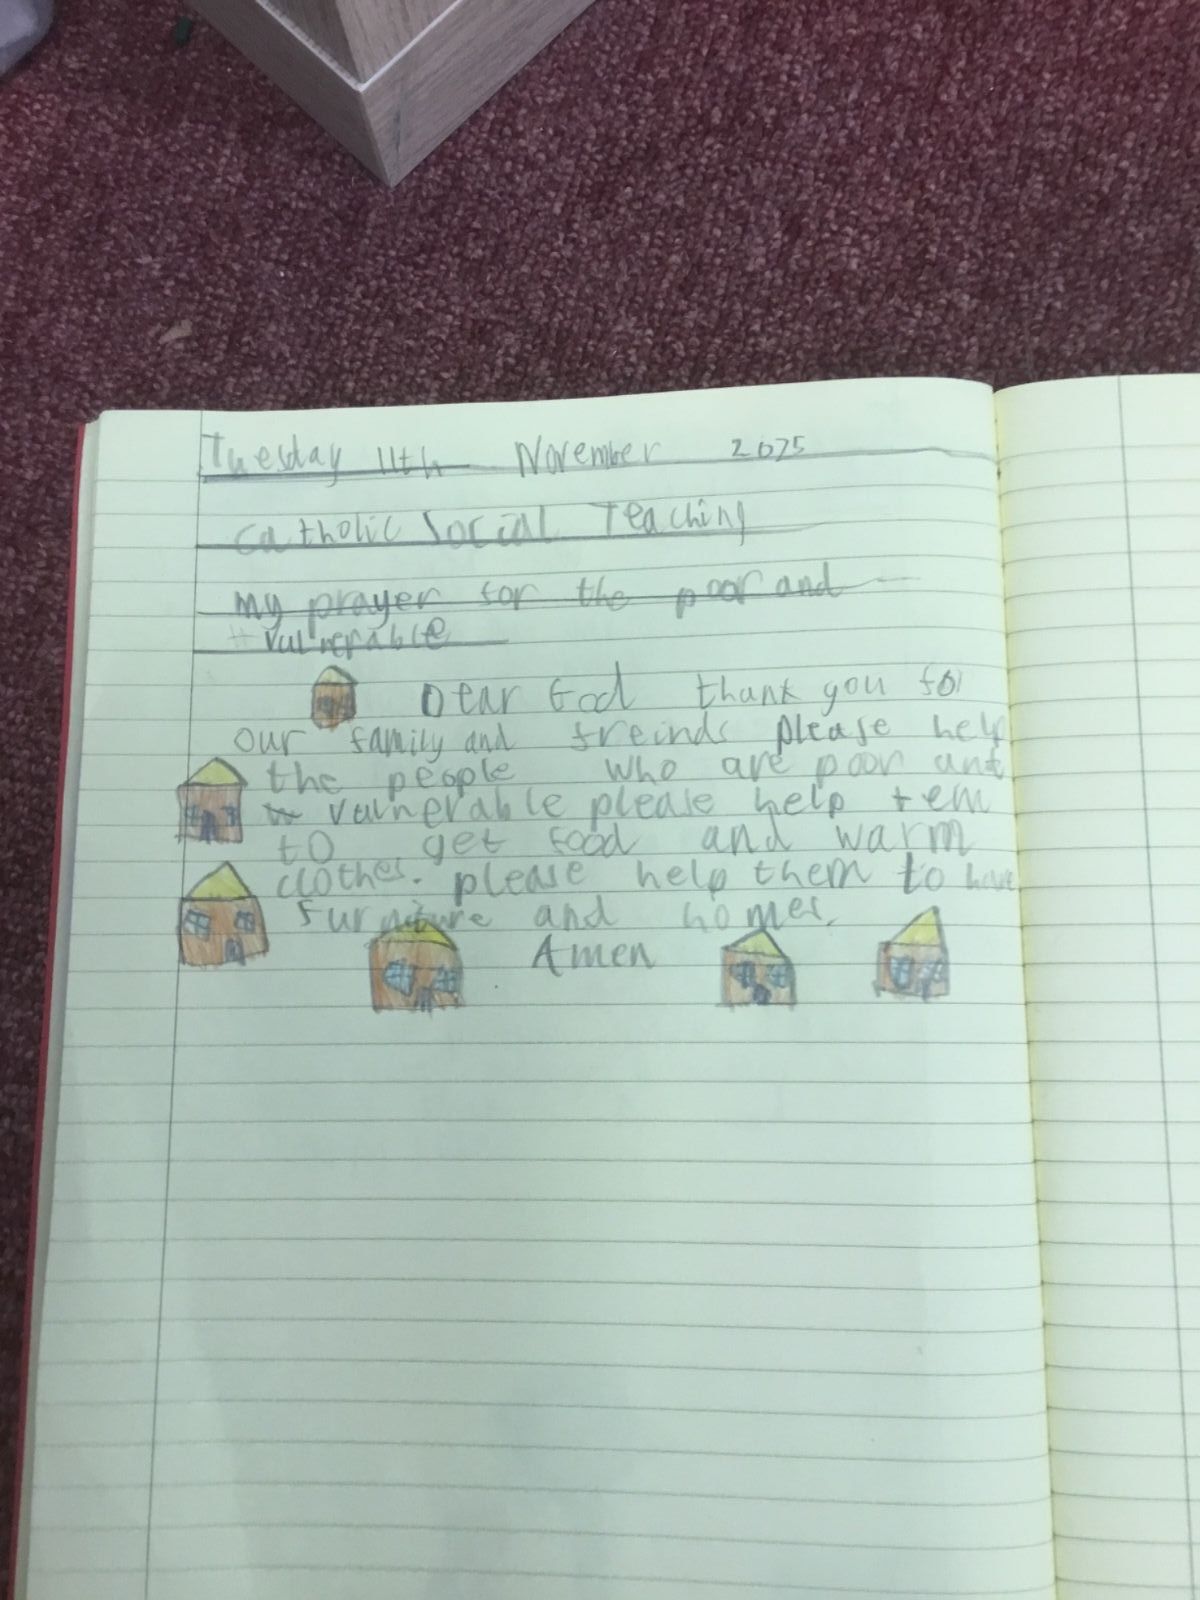 Tuesday 11th November 2025
Catholic Social Teaching
My prayer for the poor and
vulnerable
Dear God thank you for
our family and freinds please help
the people who are poor and
vulnerable please help tem
to get food and warm
clothes. please help them to have
furniture and homes.
Amen